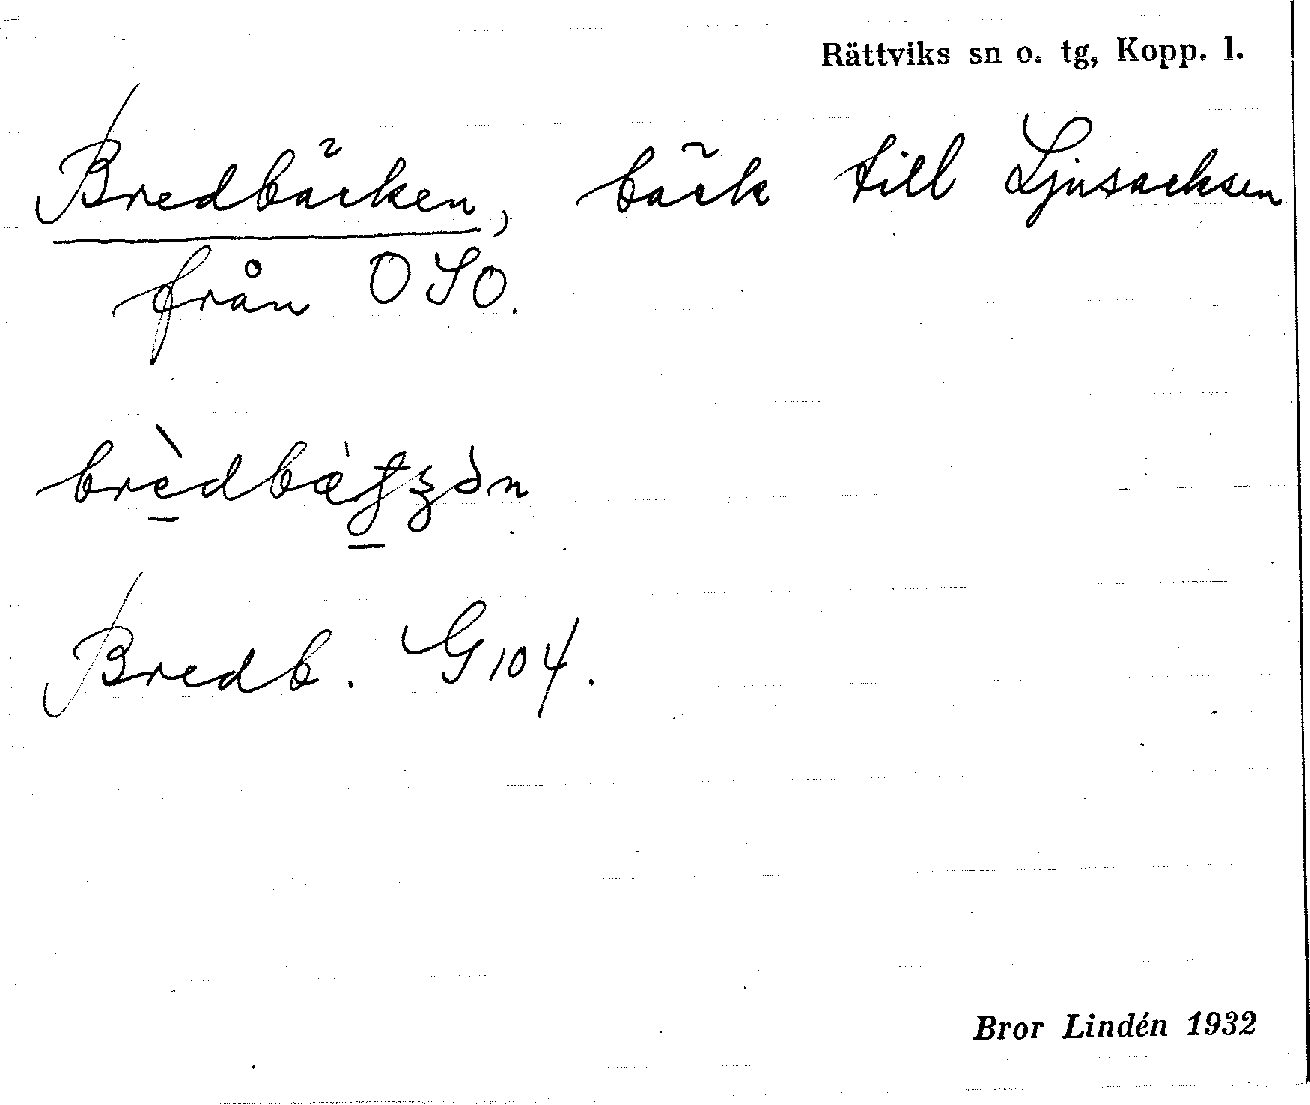 Rättviks sn o. tg, Kopp. l.
Bredbäcken, bäck till Ljusacksen
från OSO.
Bredb. G 104.
Bror Lindén 1932